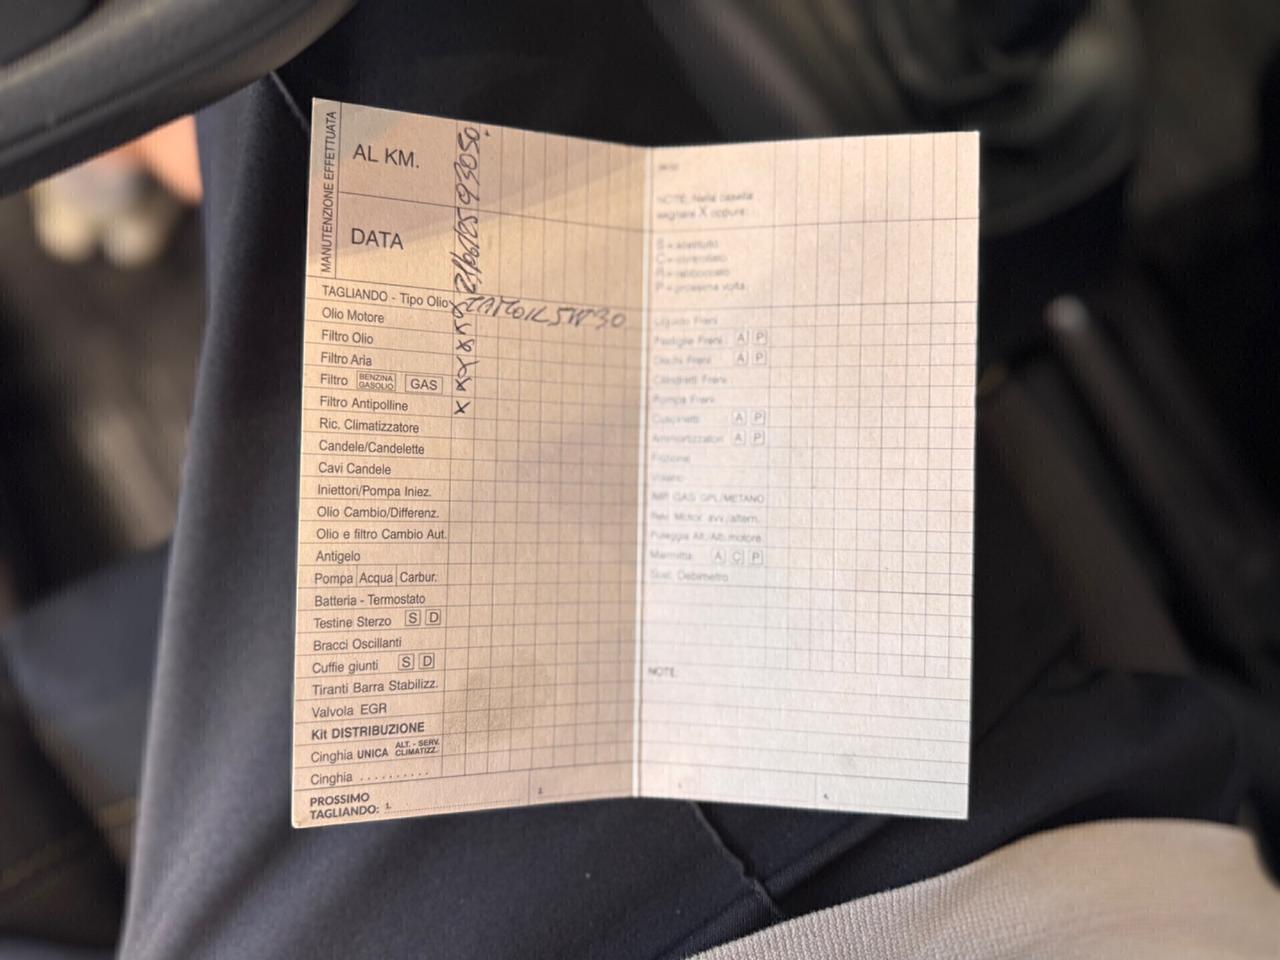 MANUTENZIONE EFFETTUATA
AL KM. 93050
DATA 21/6/25
TAGLIANDO - Tipo Olio X TAMOIL 5W30
Olio Motore X
Filtro Olio X
Filtro Aria X
Filtro BENZINA GASOLIO GAS X
Filtro Antipolline X
Ric. Climatizzatore
Candele/Candelette
Cavi Candele
Iniettori/Pompa Iniez.
Olio Cambio/Differenz.
Olio e filtro Cambio Aut.
Antigelo
Pompa Acqua Carbur.
Batteria - Termostato
Testine Sterzo S D
Bracci Oscillanti
Cuffie giunti S D
Tiranti Barra Stabilizz.
Valvola EGR
Kit DISTRIBUZIONE
Cinghia UNICA ALT. - SERV. CLIMATIZZ.
Cinghia ..........
PROSSIMO
TAGLIANDO: 1. 2.
NOTE: Nella casella
segnare X oppure:
S = sostituito
C = controllato
R = rabboccato
P = prossima volta
Liquido Freni
Pastiglie Freni A P
Dischi Freni A P
Cilindretti Freni
Pompa Freni
Cuscinetti A P
Ammortizzatori A P
Frizione
Volano
IMP. GAS GPL/METANO
Rev. Motor. avv./altern.
Puleggia Alt./Alb. motore
Marmitta A C P
Sost. Debimetro
NOTE:
4.